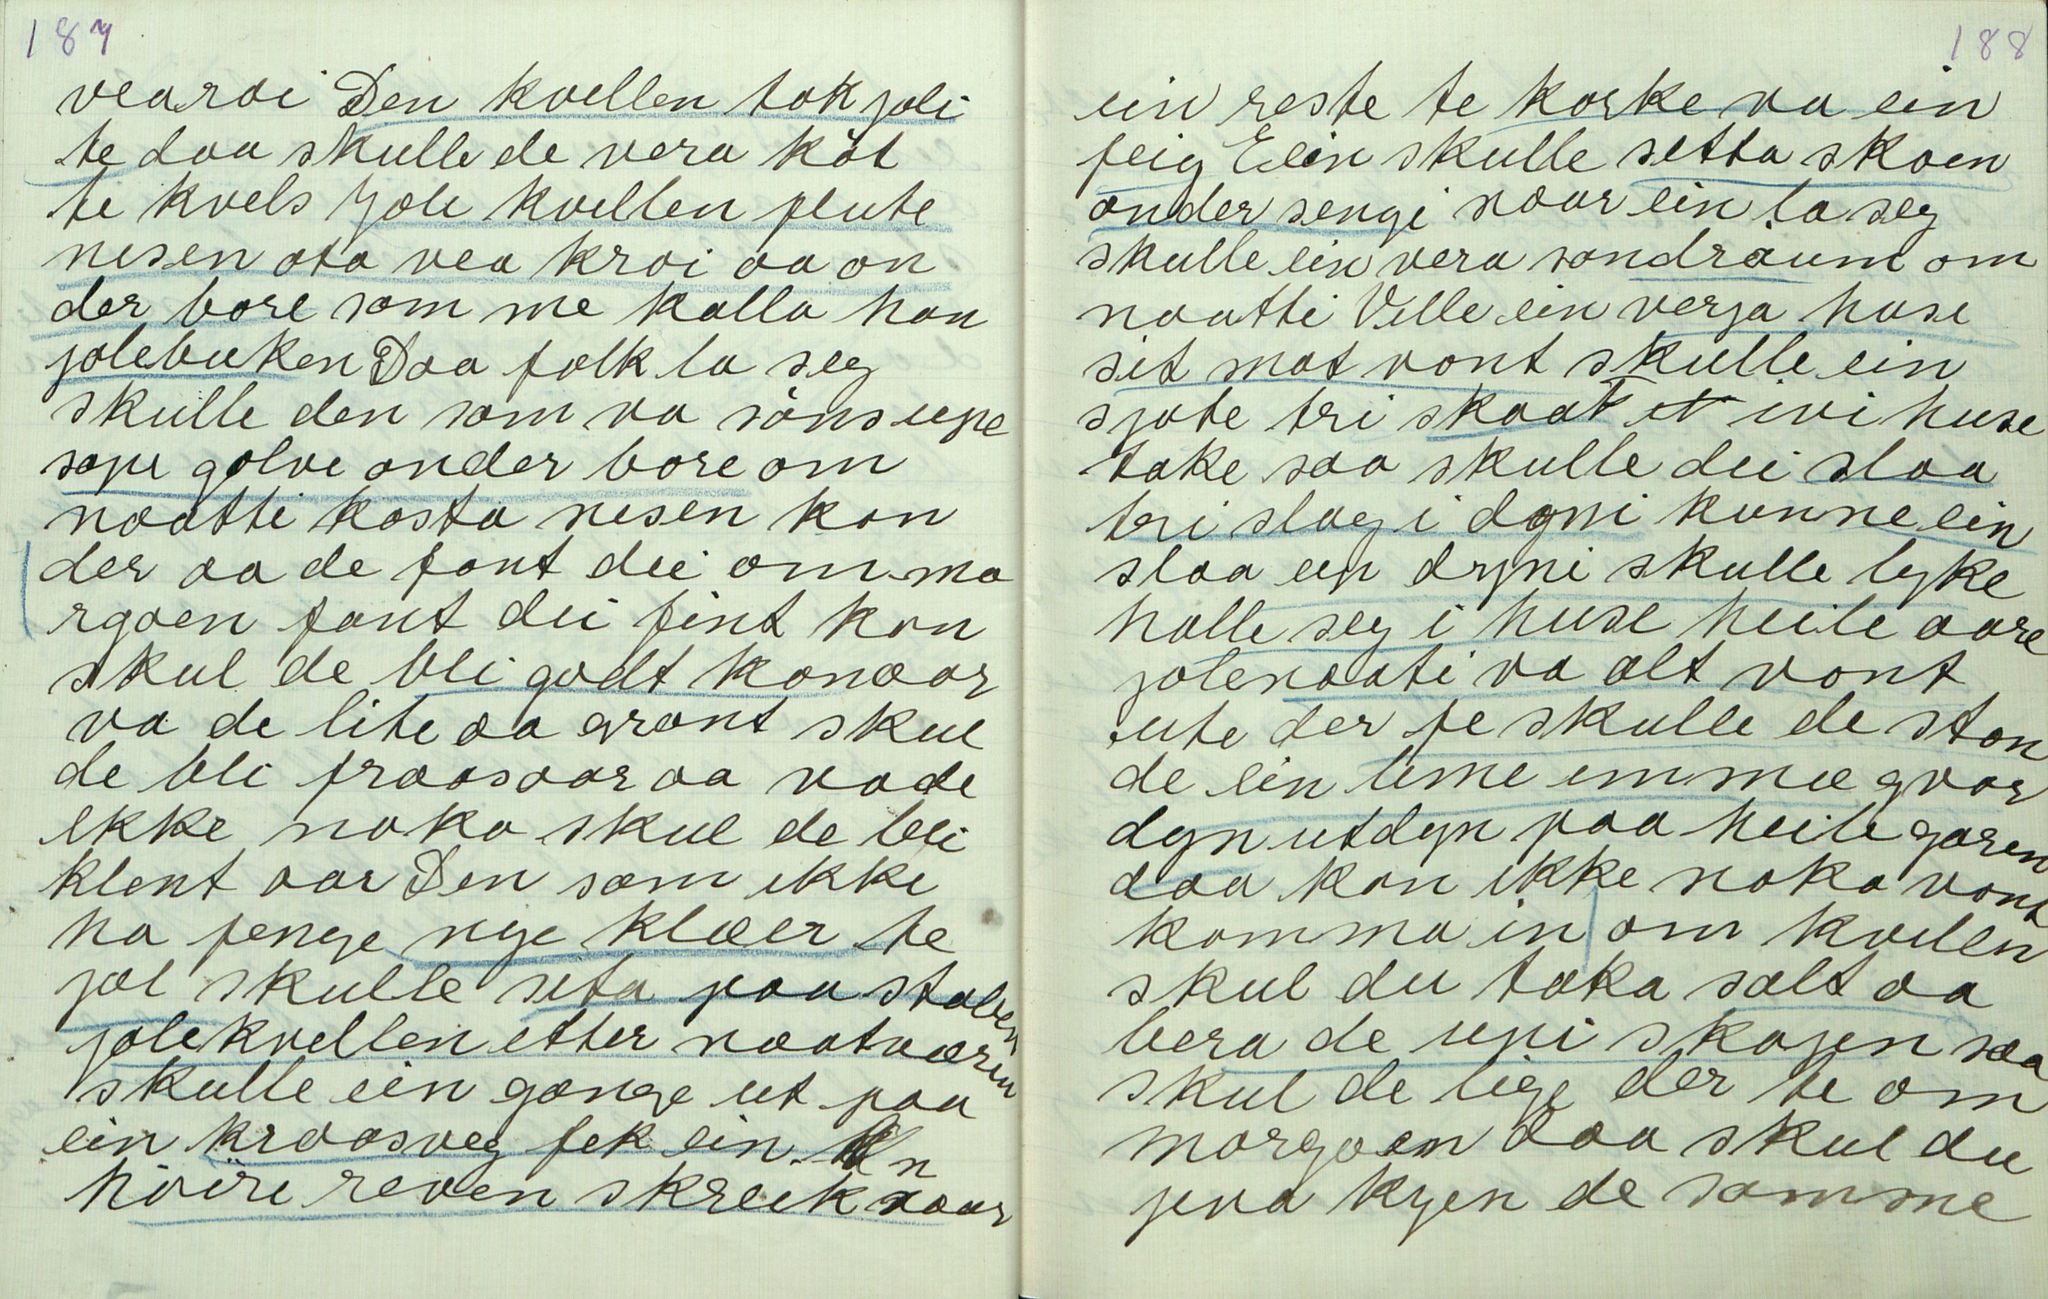 187
vearoi Den kvellen tok joli
te daa skulle de vera köt
te kvels Jole kvellen flute
nisen ota vea kroi aa on
der bore som me kalla han
jolebuken Daa folk la seg
skulle den som va söns supe
sope golve onder bore om
naatti kosta nisen kon
der aa de font dei om mo
rgoen font dei fint kon
skul de bli godt konaar
va de lite aa gront skul
de bli fraasaar aa vade
ikke noko skul de bli
klent aar Den som ikke
ha fenge nye klæer te
jol skulle seta paa stolen
jolekvellen etter naatværin
skulle ein gonge ut paa
ein kraasveg fek ein
höire reven skreik naar
188
ein reste te korke va ein
feig Ein skulle setta skoen
onder sengi naar ein la seg
skulle ein vera sondräum om
naatti Ville ein verja huse
sit mot vont skulle ein
sjote tri skaat ivi huse
take saa skulle dei slaa
tri slag i dgni kunne ein
slaa up drgni skulle lyke
halle seg i huse heile aare
jolenaati va alt vont
ute der fe skulle de ston
de ein lime imme qvar
dyn utdyn paa heile garen
daa kon ikke noko vont
komma in om kvellen
skul du taka salt aa
bera de upi skapen saa
skul de lige der te om
morgoen daa skul du
jeva kyen de somme